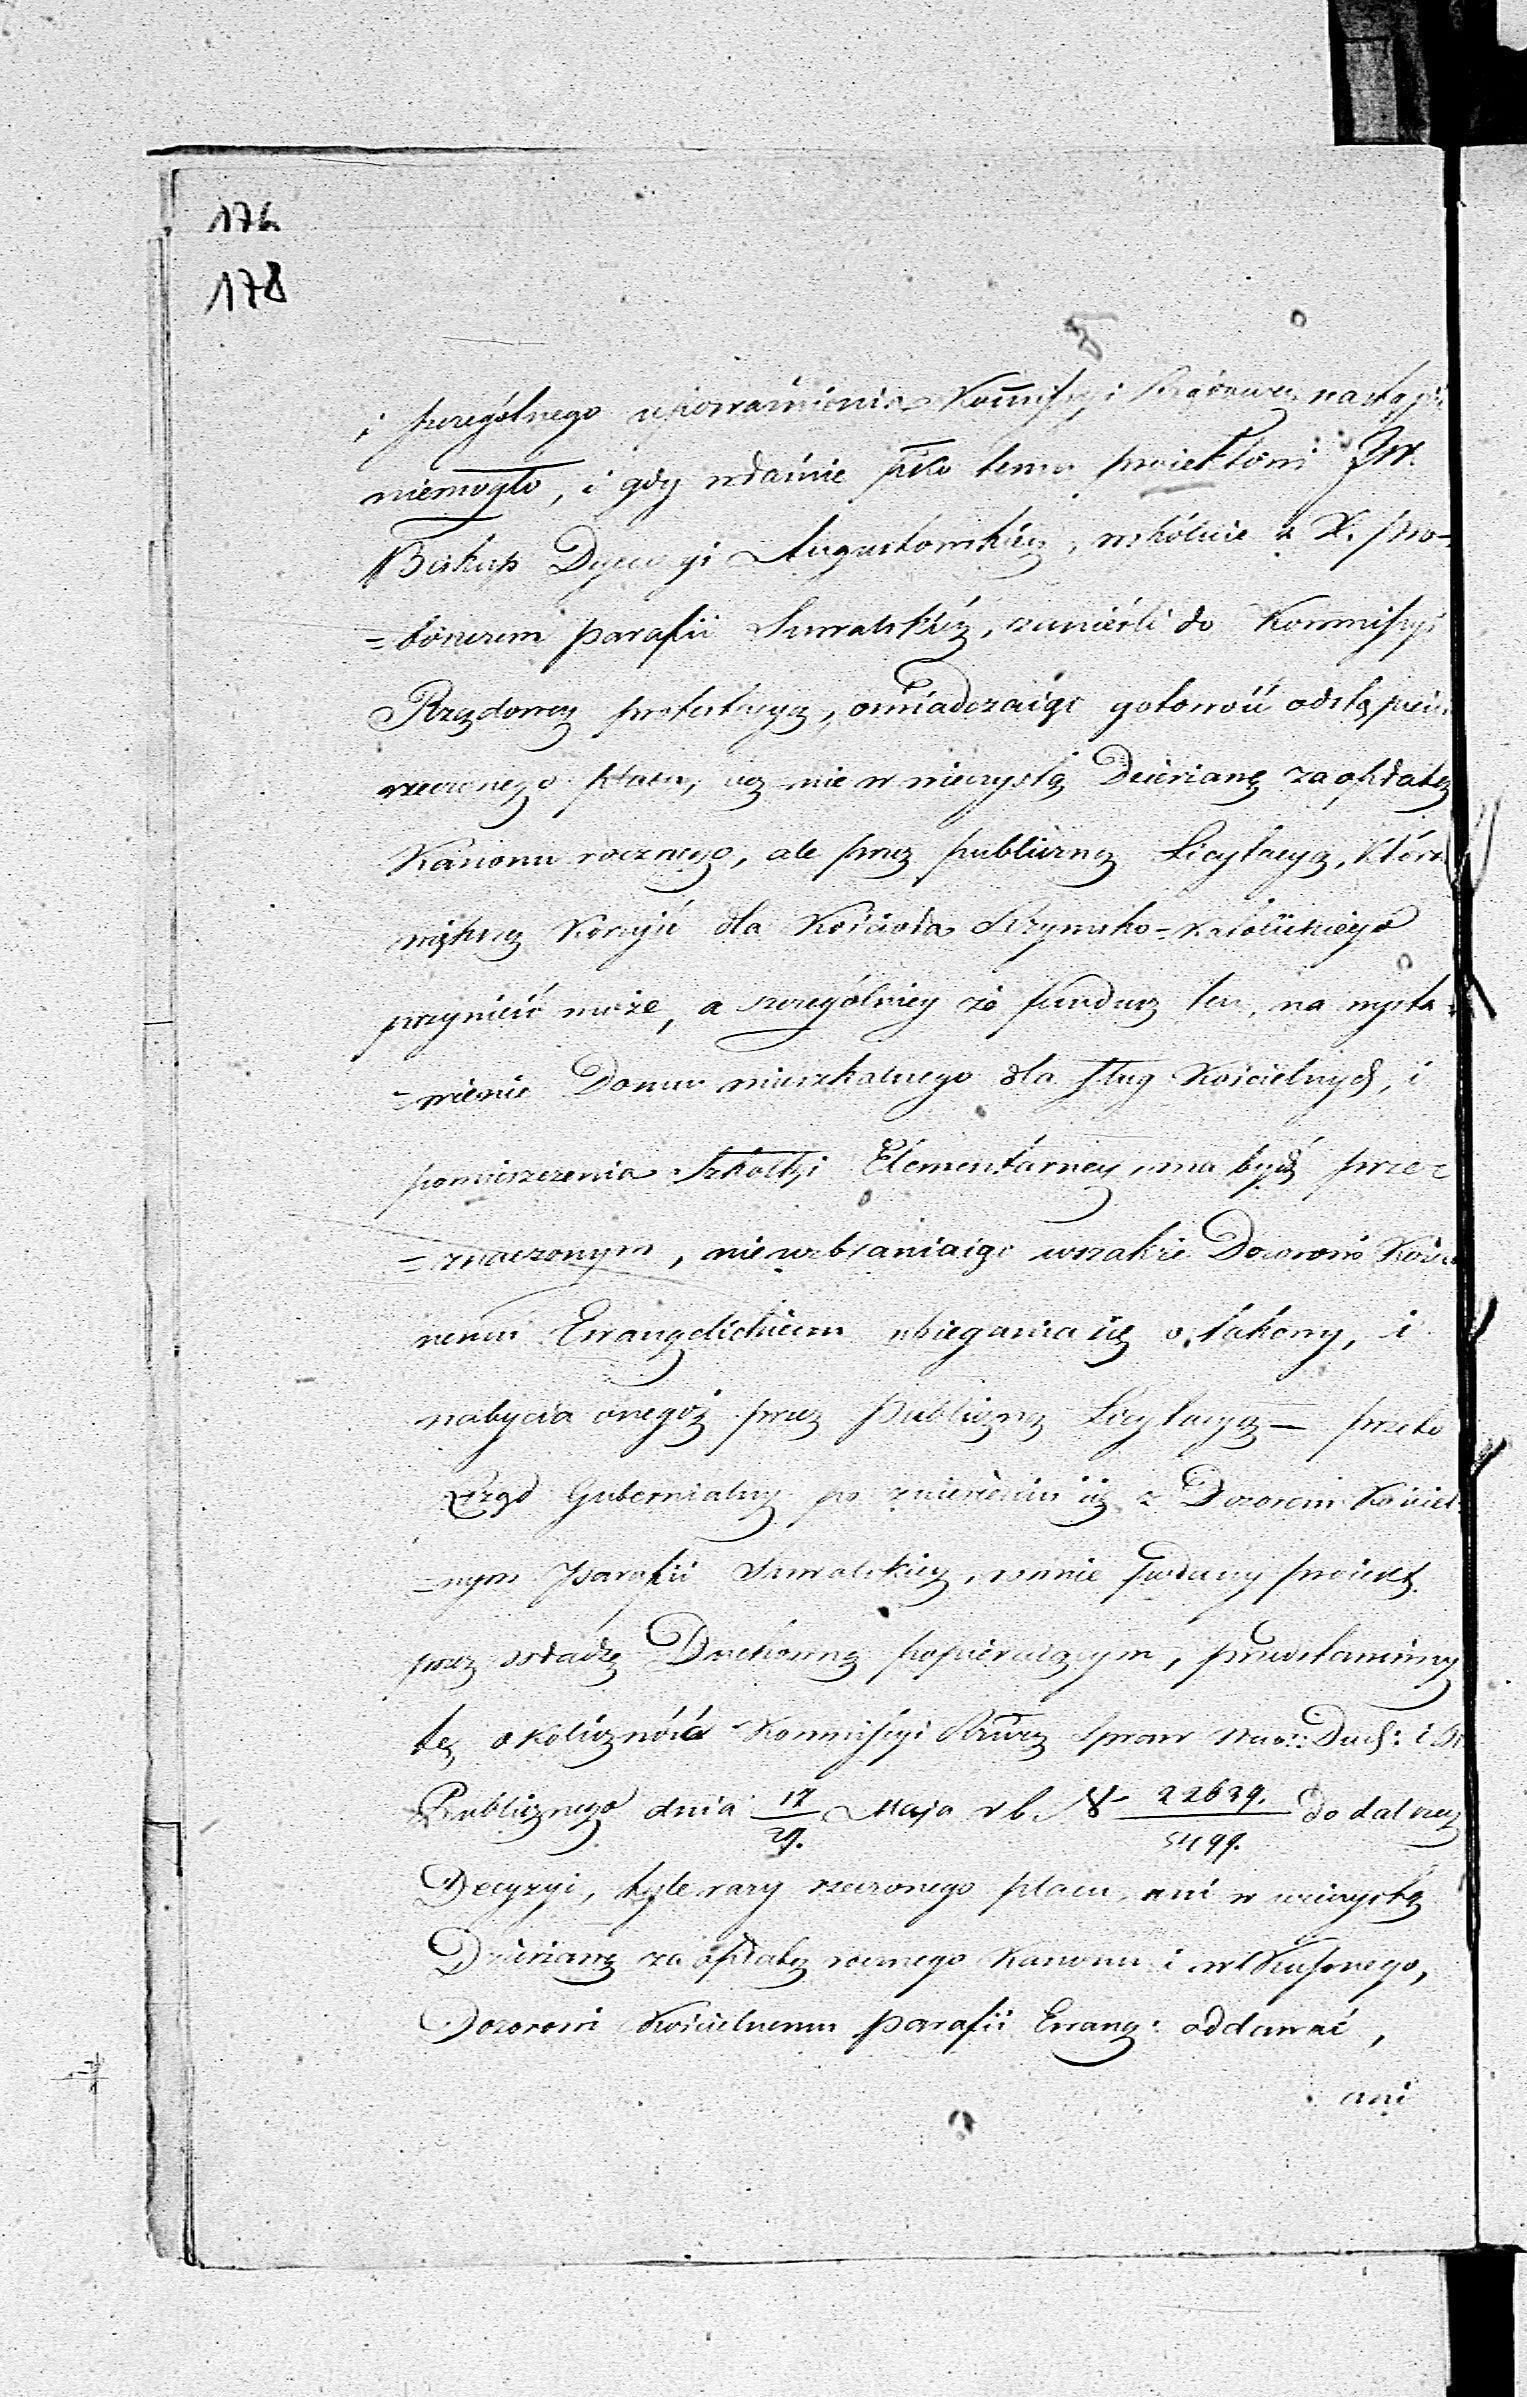 176
178
i szczególnego upoważnienia Kommissyi Rządowey nastąpić
niemogło, i gdy właśnie pko temu proiektowi JW.
Biskup Dyecezyi Augustowskiey, wspólnie z X. Pro-
=boszczem parafii Suwalskiéy, zanieśli do Kommissyi
Rządowey protestacyą, oświadczaiąc gotowość odstąpienia
rzeczonego placu, lecz nie w wieczystą Dzierżawę za opłatą
Kanonu rocznego, ale przez publiczną Licytacyą, która
większą korzyść dla Kościoła Rzymsko-Katolickiego
przynieść może, a szczególniey że fundusz ten, na wysta-
=wienie Domu mieszkalnego dla sług Kościelnych, i
pomieszczenia Szkółki Elementarney, ma bydź prze-
=znaczonym, niewzbraniaiąc wszakże Dozorowi Kościel
nemu Ewangelickiemu ubiegania się o takowy, i
nabycia onegoż przez Publiczną Licytacyą — przeto
Rząd Gubernialny po zniesieniu się z Dozorem Kościel
=nym Parafii Suwalskiey, w
przez władzę Duchowną popieraiącym, przedstawiwszy
tę okoliczność Kommissyi Rząwey Spraw Wew: Duch: i
Publicznego dnia 17/29. Maja r b. N 22639./5499. do dalszey
Decyzyi, tyle razy rzeczonego placu, ani w wieczystą
Dzierżawę za opłatą rocznego Kanonu i wkupnego,
Dozorowi Kościelnemu parafii Ewang: oddawać,
ani